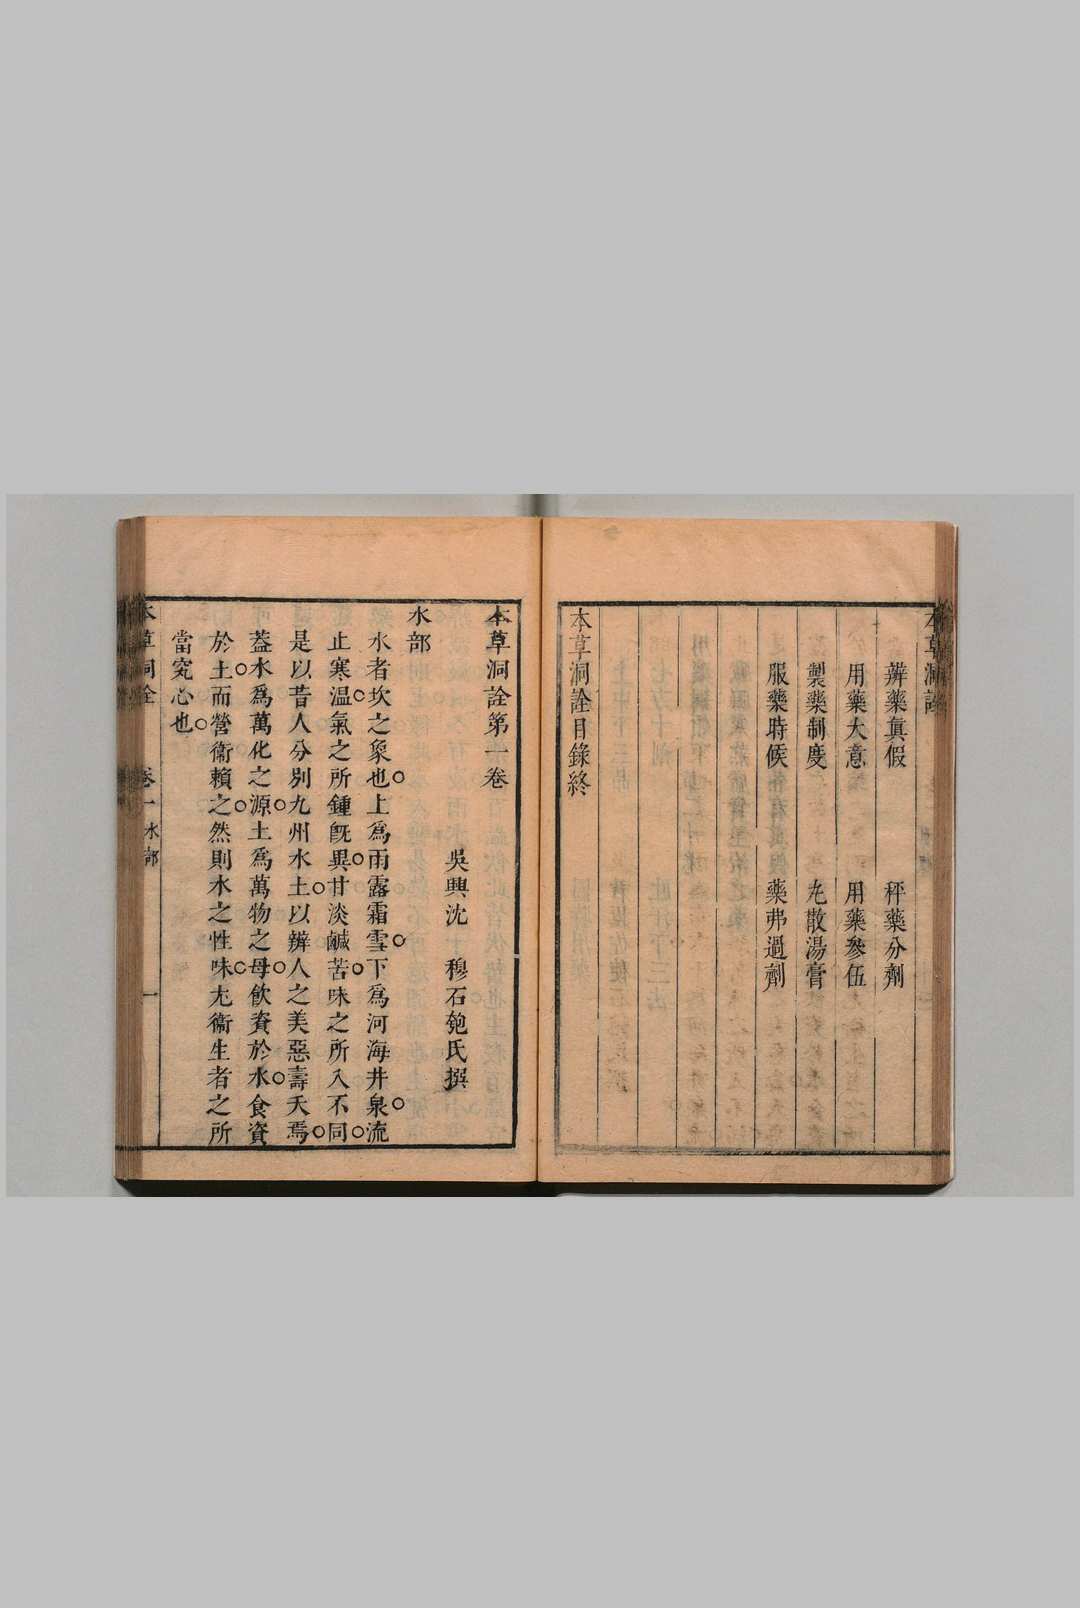 本草洞詮
辨藥真假　秤藥分劑
用藥大意　用藥參伍
製藥制度　丸散湯膏
服藥時候　藥弗過劑
本草洞詮目錄終
本草洞詮第一卷
吳興沈　穆石匏氏撰
水部
水者坎之象也○上爲雨露霜雪○下爲河海井泉○流
止寒温○氣之所鍾旣異○甘淡鹹苦○味之所入不同○
是以昔人分別九州水土○以辨人之美惡壽夭焉○
葢水爲萬化之源○土爲萬物之母○飮資於水○食資
於土○而營衞賴之○然則水之性味○尤衞生者之所
當究心也○
本草洞詮　卷一　水部　一